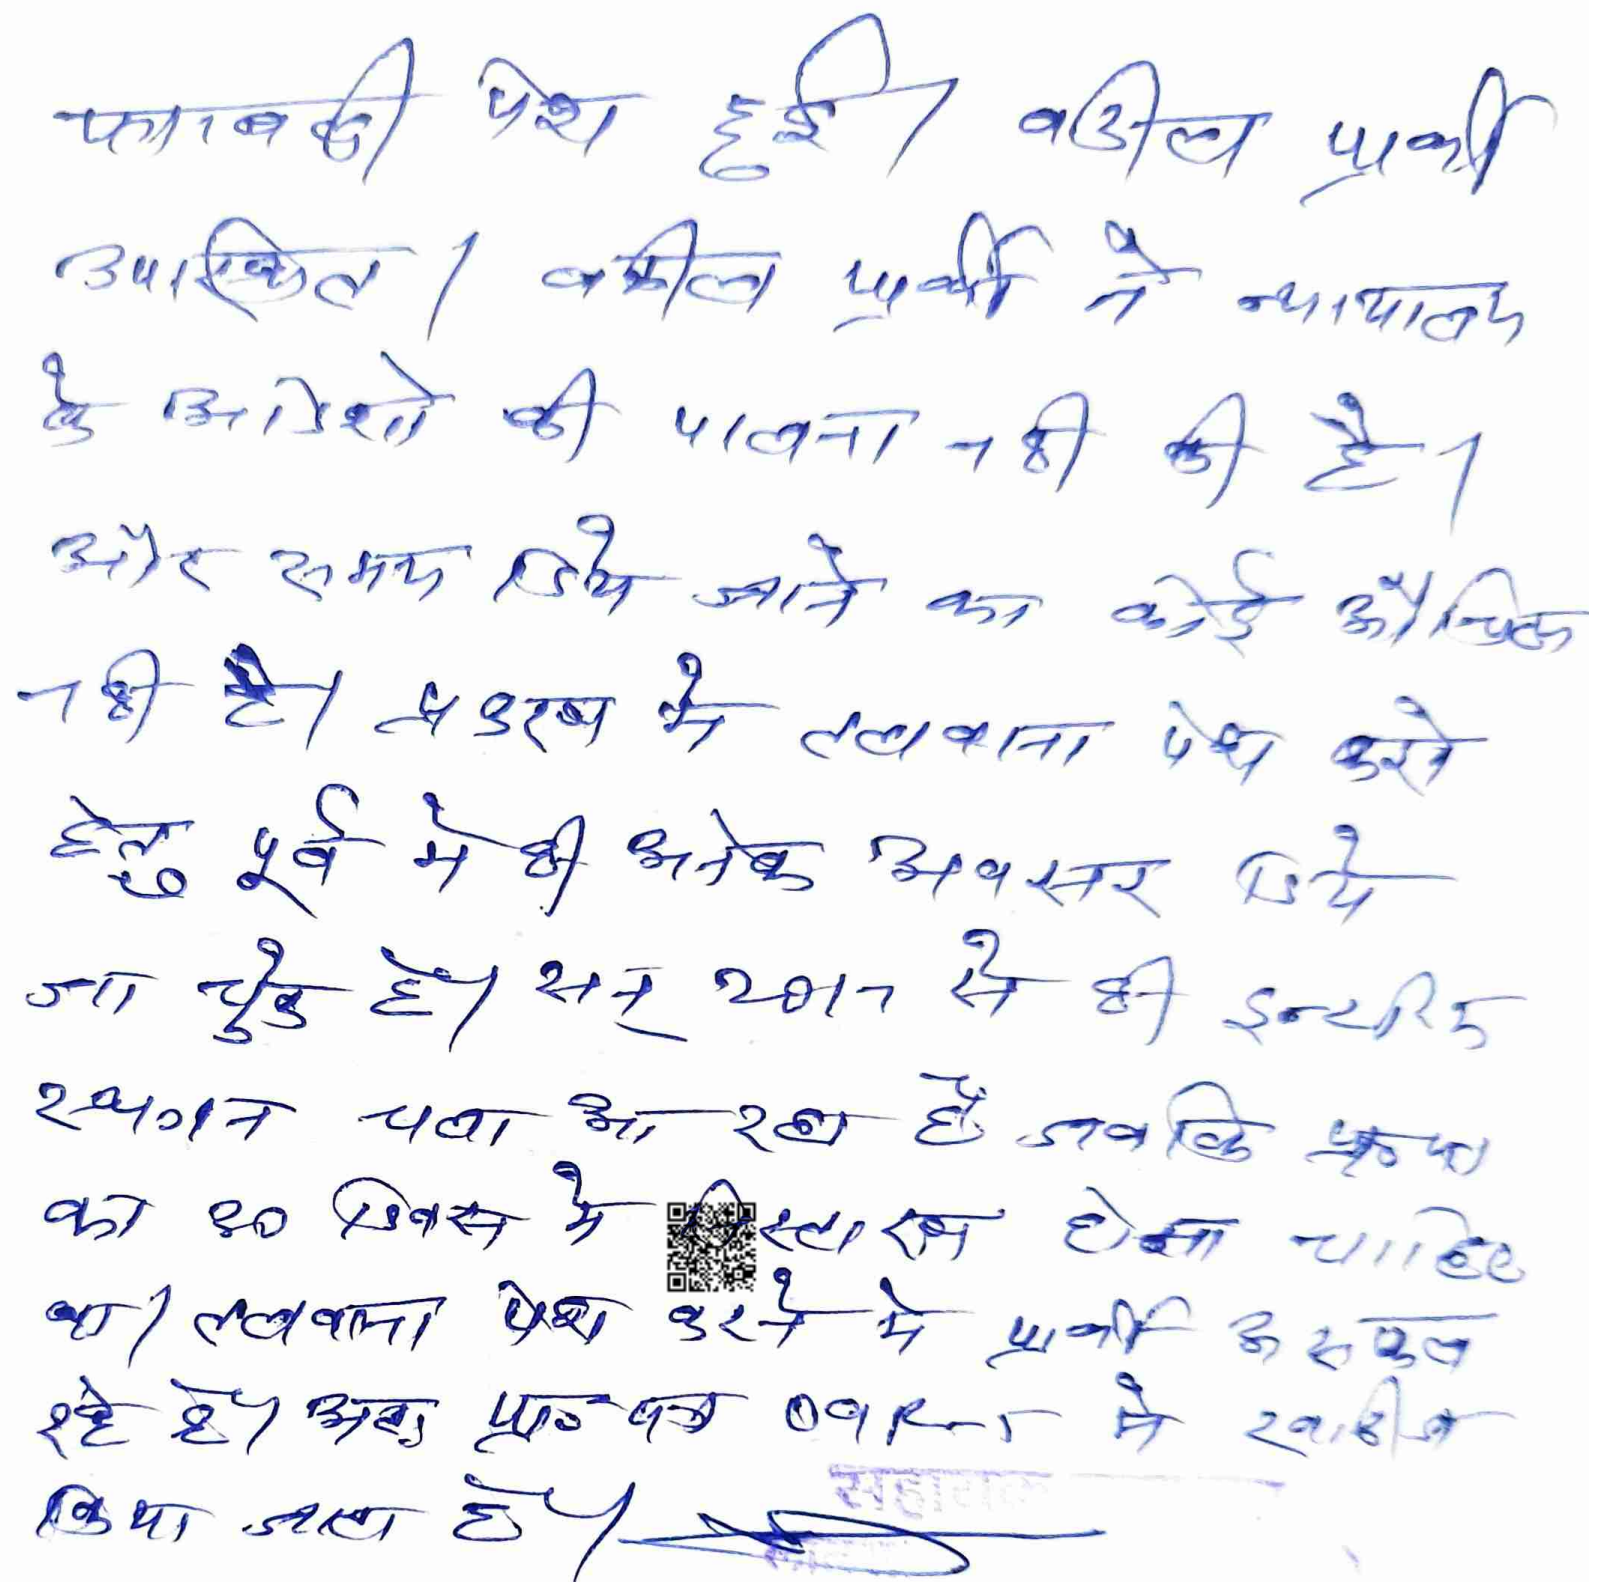 पत्रावली पेश हुई। वकील प्रार्थी
उपस्थित। वकील प्रार्थी ने न्यायालय
के आदेशो की पालना नही की है।
और समय दिये जाने का कोई औचित्य
नही है। प्रकरण मे तलवाना पेश करने
हेतु पूर्व मे ही अनेक अवसर दिये
जा चुके है। सन् 2017 से ही इन्टरिम
स्थगन चला आ रहा है जबकि
का 90 दिवस मे निस्तारण होना चाहिए
था। तलवाना पेश करने मे प्रार्थी असफल
रहे है। अतः प्रा० पत्र मे खारीज
किया जाता है।
सहायक